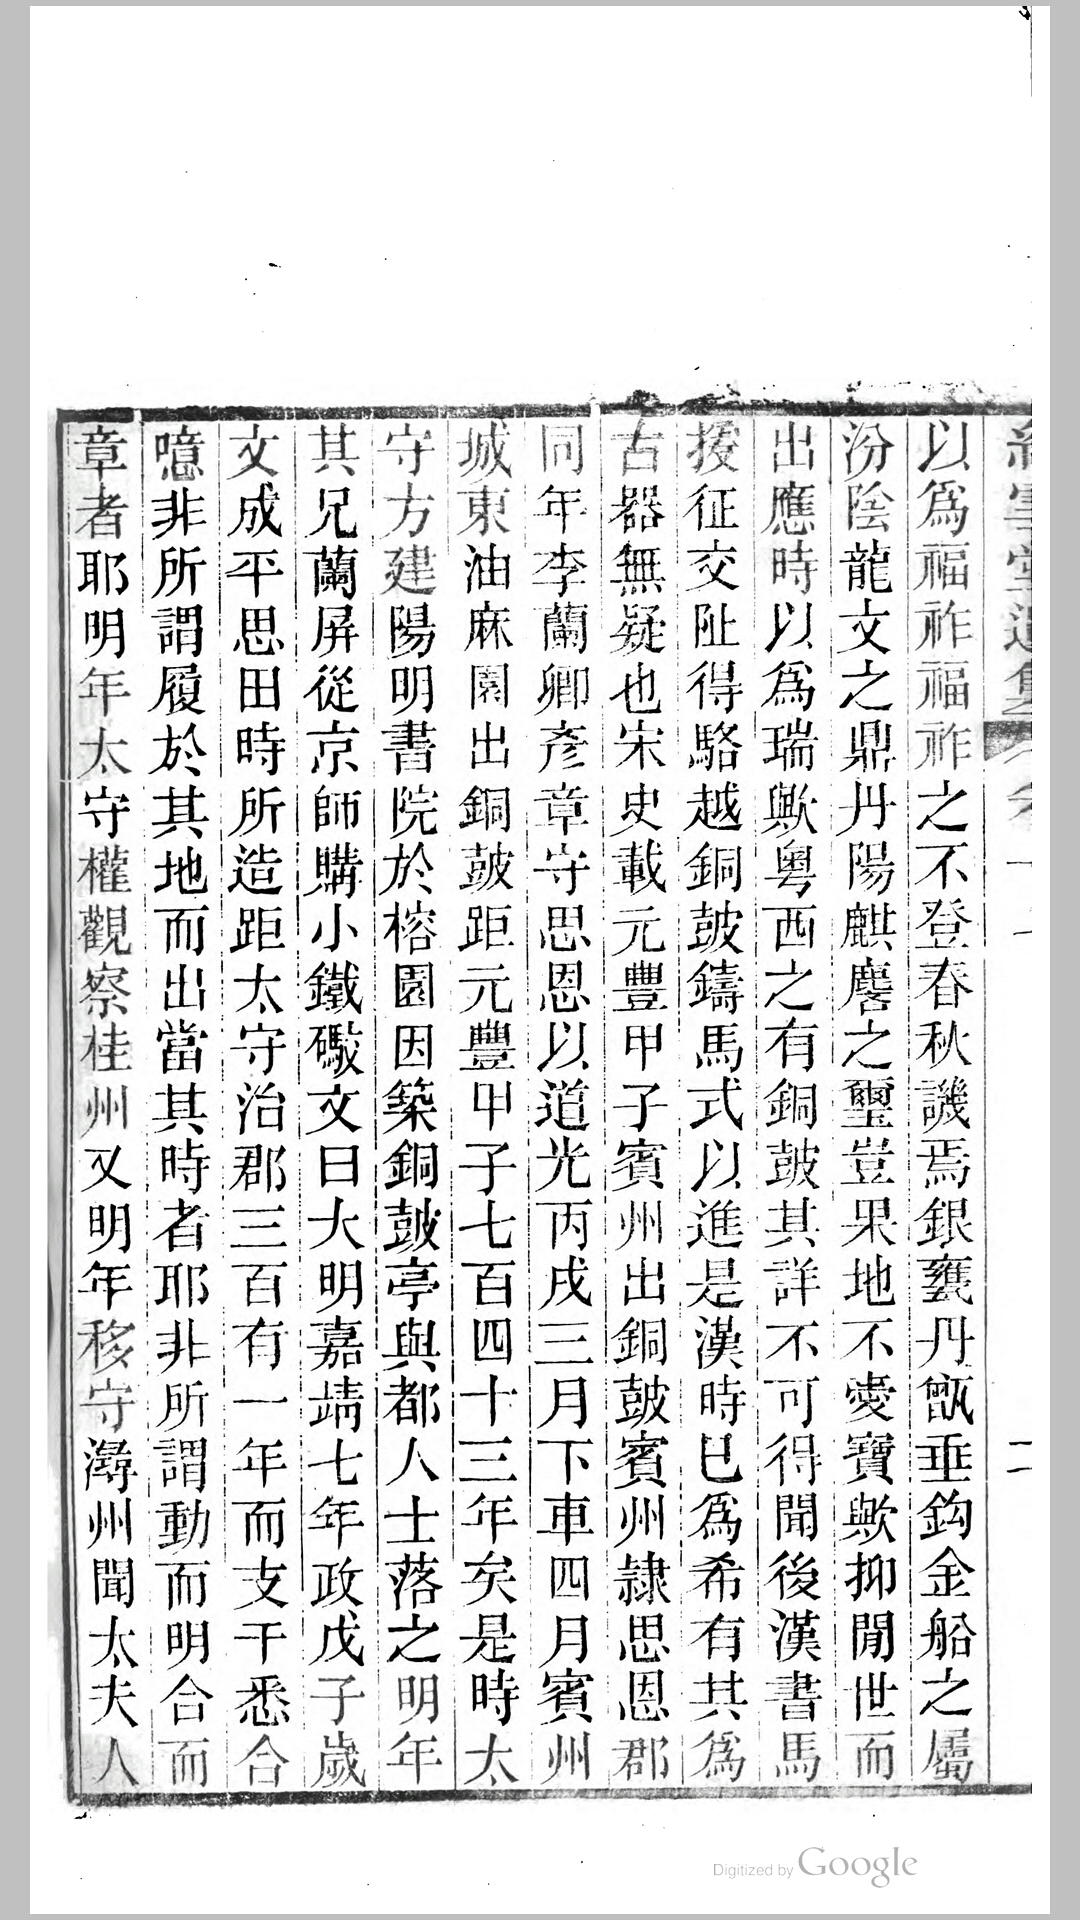 以爲福祚福祚之不登春秋譏焉銀甕丹甑垂鈎金船之屬
汾陰龍文之鼎丹陽麒麐之璽豈果地不愛寶歟抑閒世而
出應時以爲瑞歟粤西之有銅鼓其詳不可得聞後漢書馬
援征交阯得駱越銅鼓鑄馬式以進是漢時已爲希有其爲
古器無疑也宋史載元豐甲子賓州出銅鼓賓州隸思恩郡
同年李蘭卿彥章守思恩以道光丙戌三月下車四月賓州
城東油麻園出銅鼓距元豐甲子七百四十三年矣是時太
守方建陽明書院於榕園因築銅鼓亭與都人士落之明年
其兄蘭屏從京師購小鐵礮文曰大明嘉靖七年政戊子歲
文成平思田時所造距太守治郡三百有一年而支干悉合
噫非所謂履於其地而出當其時者耶非所謂動而明合而
章者耶明年太守權觀察桂州又明年移守潯州聞太夫人
二
Digitized by Google